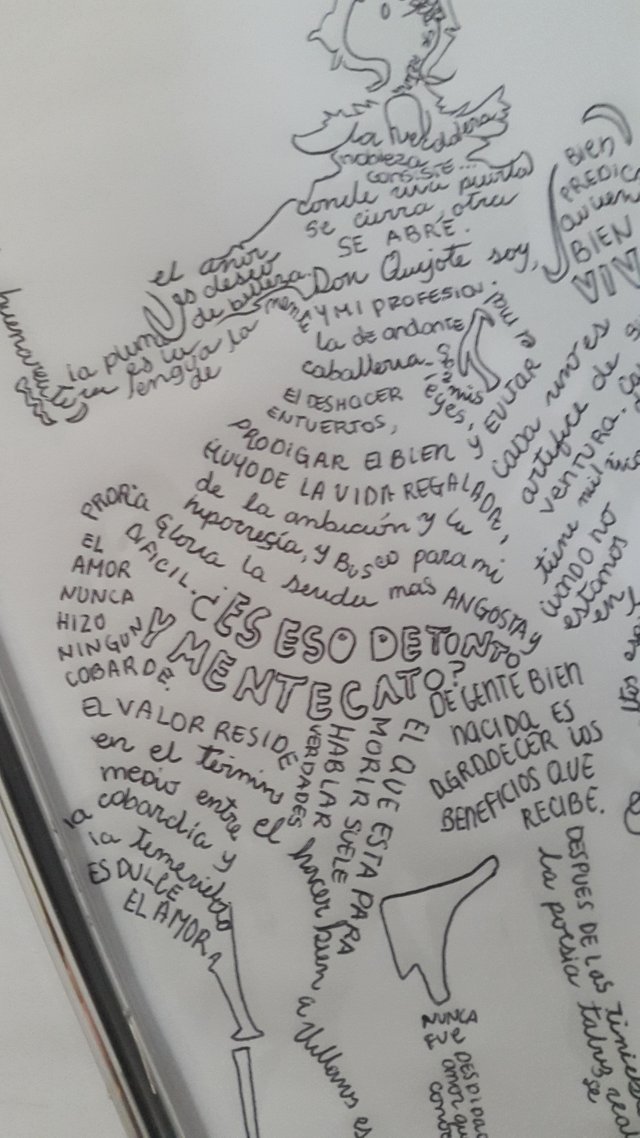 la verdadera
nobleza
consiste...
donde una puerta
se cierra, otra
SE ABRE.
BIEN
PREDICA
quien
BIEN
VIVE
el amor
es deseo
de belleza.
buenaventura
la pluma
es la
lengua
de
la
mente
Don Quijote soy,
Y MI PROFESIÓN
la de andante
caballería.
Son
mis
leyes,
El DESHACER
ENTUERTOS,
PRODIGAR El BIEN y EVITAR
el mal.
HUYO DE LA VIDA REGALADA,
de la ambición y la
hipocresía, y BUSCO para mi
PROPIA Gloria la senda más ANGOSTA y
DIFICIL.
¿ES ESO DE TONTO
Y MENTECATO?
EL
AMOR
NUNCA
HIZO
NINGUN
COBARDE.
cada uno es
artífice de su
VENTURA.
tiene mil
cuando no
estamos
en
EL VALOR RESIDE
en el término
medio entre
la
cobardía y
la temeridad
ES DULCE
EL AMOR
VERDADES
HABLAR
MORIR SUELE
EL QUE ESTA PARA
el hacer bien
a villanos es
DE GENTE BIEN
NACIDA ES
AGRADECER LOS
BENEFICIOS QUE
RECIBE.
DESPUES DE LAS
la poesía tal vez se
NUNCA
FUE DESDI
amor que